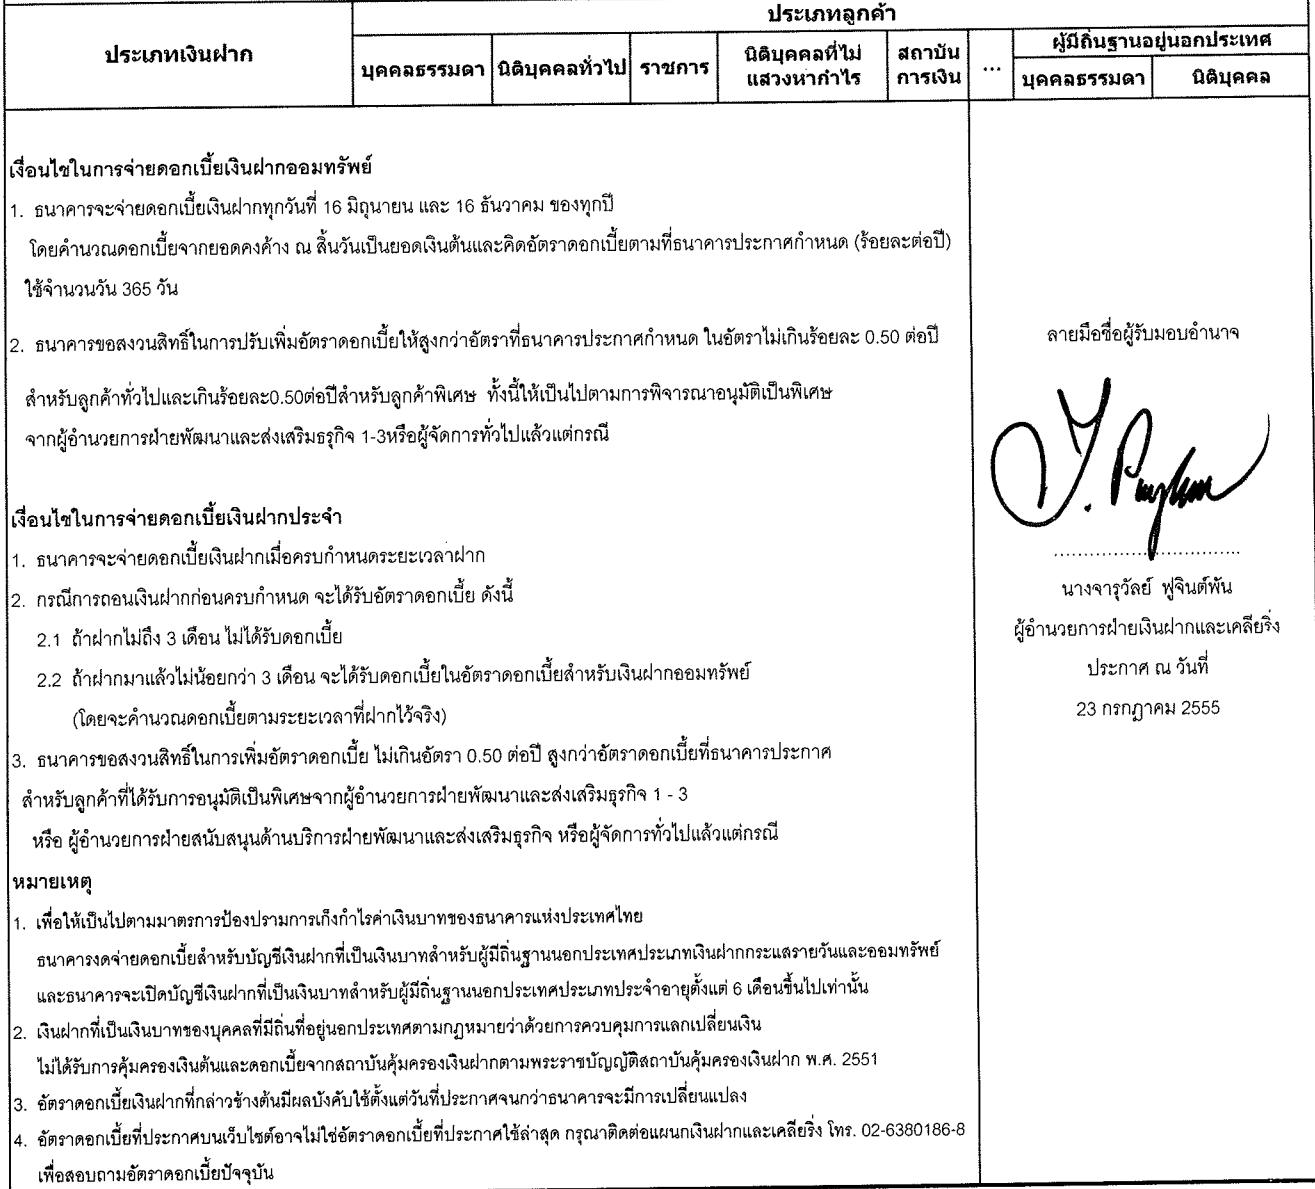 ประเภทเงินฝาก
ประเภทลูกค้า
บุคคลธรรมดา
นิติบุคคลทั่วไป
ราชการ
นิติบุคคลที่ไม่
แสวงหากำไร
สถาบัน
การเงิน
...
ผู้มีถิ่นฐานอยู่นอกประเทศ
บุคคลธรรมดา
นิติบุคคล
เงื่อนไขในการจ่ายดอกเบี้ยเงินฝากออมทรัพย์
1. ธนาคารจะจ่ายดอกเบี้ยเงินฝากทุกวันที่ 16 มิถุนายน และ 16 ธันวาคม ของทุกปี
โดยคำนวณดอกเบี้ยจากยอดคงค้าง ณ สิ้นวันเป็นยอดเงินต้นและคิดอัตราดอกเบี้ยตามที่ธนาคารประกาศกำหนด (ร้อยละต่อปี)
ใช้จำนวนวัน 365 วัน
2. ธนาคารขอสงวนสิทธิ์ในการปรับเพิ่มอัตราดอกเบี้ยให้สูงกว่าอัตราที่ธนาคารประกาศกำหนด ในอัตราไม่เกินร้อยละ 0.50 ต่อปี
สำหรับลูกค้าทั่วไปและเกินร้อยละ0.50ต่อปีสำหรับลูกค้าพิเศษ ทั้งนี้ให้เป็นไปตามการพิจารณาอนุมัติเป็นพิเศษ
จากผู้อำนวยการฝ่ายพัฒนาและส่งเสริมธรุกิจ 1-3หรือผู้จัดการทั่วไปแล้วแต่กรณี
เงื่อนไขในการจ่ายดอกเบี้ยเงินฝากประจำ
1. ธนาคารจะจ่ายดอกเบี้ยเงินฝากเมื่อครบกำหนดระยะเวลาฝาก
2. กรณีการถอนเงินฝากก่อนครบกำหนด จะได้รับอัตราดอกเบี้ย ดังนี้
2.1 ถ้าฝากไม่ถึง 3 เดือน ไม่ได้รับดอกเบี้ย
2.2 ถ้าฝากมาแล้วไม่น้อยกว่า 3 เดือน จะได้รับดอกเบี้ยในอัตราดอกเบี้ยสำหรับเงินฝากออมทรัพย์
(โดยจะคำนวณดอกเบี้ยตามระยะเวลาที่ฝากไว้จริง)
3. ธนาคารขอสงวนสิทธิ์ในการเพิ่มอัตราดอกเบี้ย ไม่เกินอัตรา 0.50 ต่อปี สูงกว่าอัตราดอกเบี้ยที่ธนาคารประกาศ
สำหรับลูกค้าที่ได้รับการอนุมัติเป็นพิเศษจากผู้อำนวยการฝ่ายพัฒนาและส่งเสริมธุรกิจ 1 - 3
หรือ ผู้อำนวยการฝ่ายสนับสนุนด้านบริการฝ่ายพัฒนาและส่งเสริมธุรกิจ หรือผู้จัดการทั่วไปแล้วแต่กรณี
หมายเหตุ
1. เพื่อให้เป็นไปตามมาตรการป้องปรามการเก็งกำไรค่าเงินบาทของธนาคารแห่งประเทศไทย
ธนาคารงดจ่ายดอกเบี้ยสำหรับบัญชีเงินฝากที่เป็นเงินบาทสำหรับผู้มีถิ่นฐานนอกประเทศประเภทเงินฝากกระแสรายวันและออมทรัพย์
และธนาคารจะเปิดบัญชีเงินฝากที่เป็นเงินบาทสำหรับผู้มีถิ่นฐานนอกประเทศประเภทประจำอายุตั้งแต่ 6 เดือนขึ้นไปเท่านั้น
2. เงินฝากที่เป็นเงินบาทของบุคคลที่มีถิ่นที่อยู่นอกประเทศตามกฎหมายว่าด้วยการควบคุมการแลกเปลี่ยนเงิน
ไม่ได้รับการคุ้มครองเงินต้นและดอกเบี้ยจากสถาบันคุ้มครองเงินฝากตามพระราชบัญญัติสถาบันคุ้มครองเงินฝาก พ.ศ. 2551
3. อัตราดอกเบี้ยเงินฝากที่กล่าวข้างต้นมีผลบังคับใช้ตั้งแต่วันที่ประกาศจนกว่าธนาคารจะมีการเปลี่ยนแปลง
4. อัตราดอกเบี้ยที่ประกาศบนเว็บไซต์อาจไม่ใช่อัตราดอกเบี้ยที่ประกาศใช้ล่าสุด กรุณาติดต่อแผนกเงินฝากและเคลียริ่ง โทร. 02-6380186-8
เพื่อสอบถามอัตราดอกเบี้ยปัจจุบัน
ลายมือชื่อผู้รับมอบอำนาจ
................................
นางจารุวัลย์ ฟูจินต์พัน
ผู้อำนวยการฝ่ายเงินฝากและเคลียริ่ง
ประกาศ ณ วันที่
23 กรกฎาคม 2555